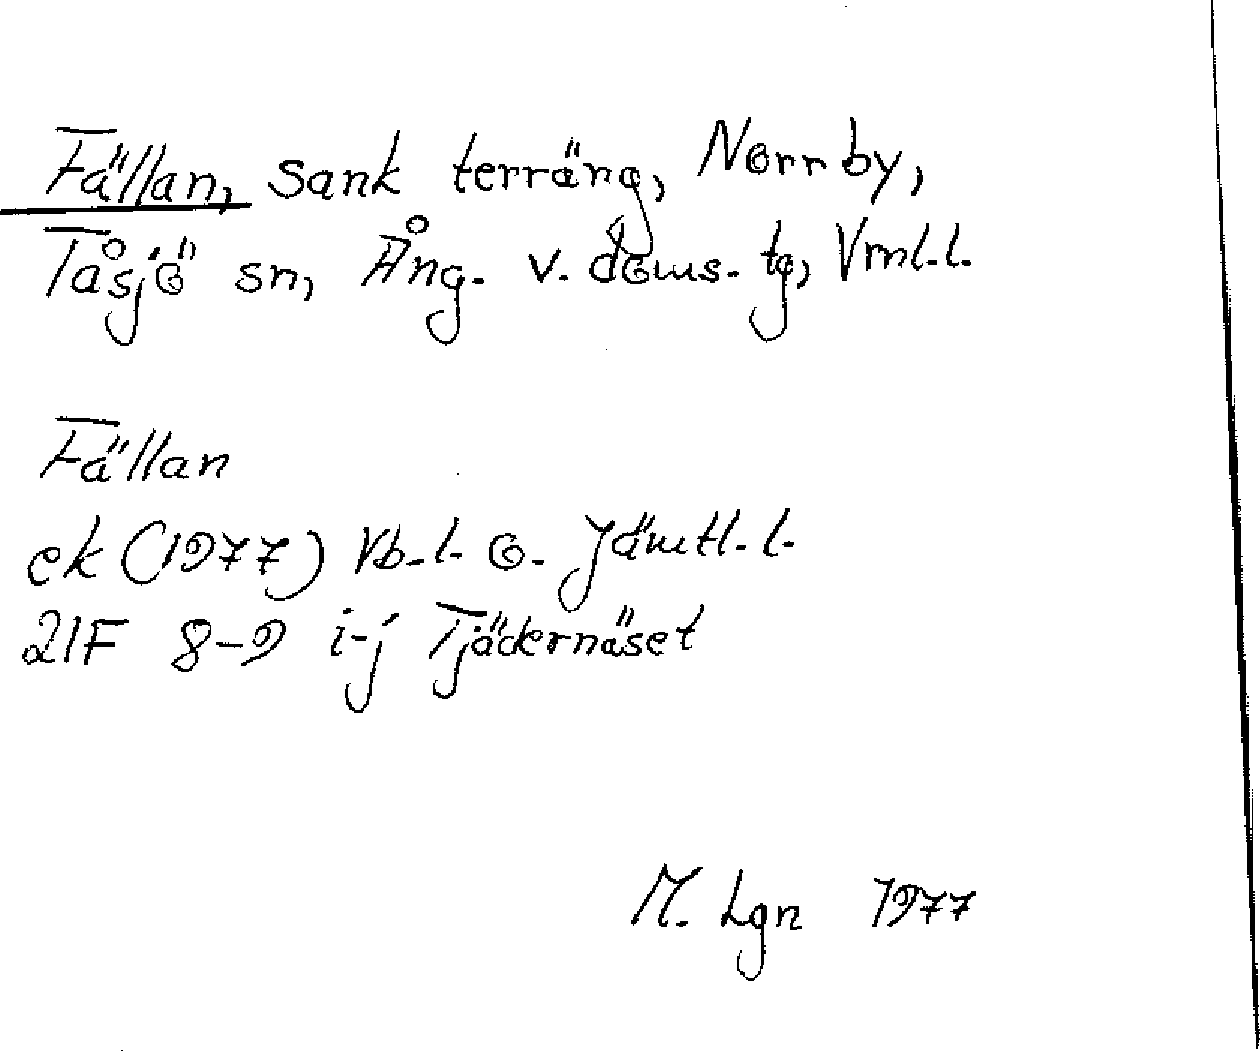 Fällan, sank terräng, Norrby,
Tåsjö sn, Ång. v. doms. tg, Vrnl.l.
Fällan
ek (1977) Vb.l. o. Jämtl. l.
21F 8-9 i-j Tjädernäset
M. Lgn 1977